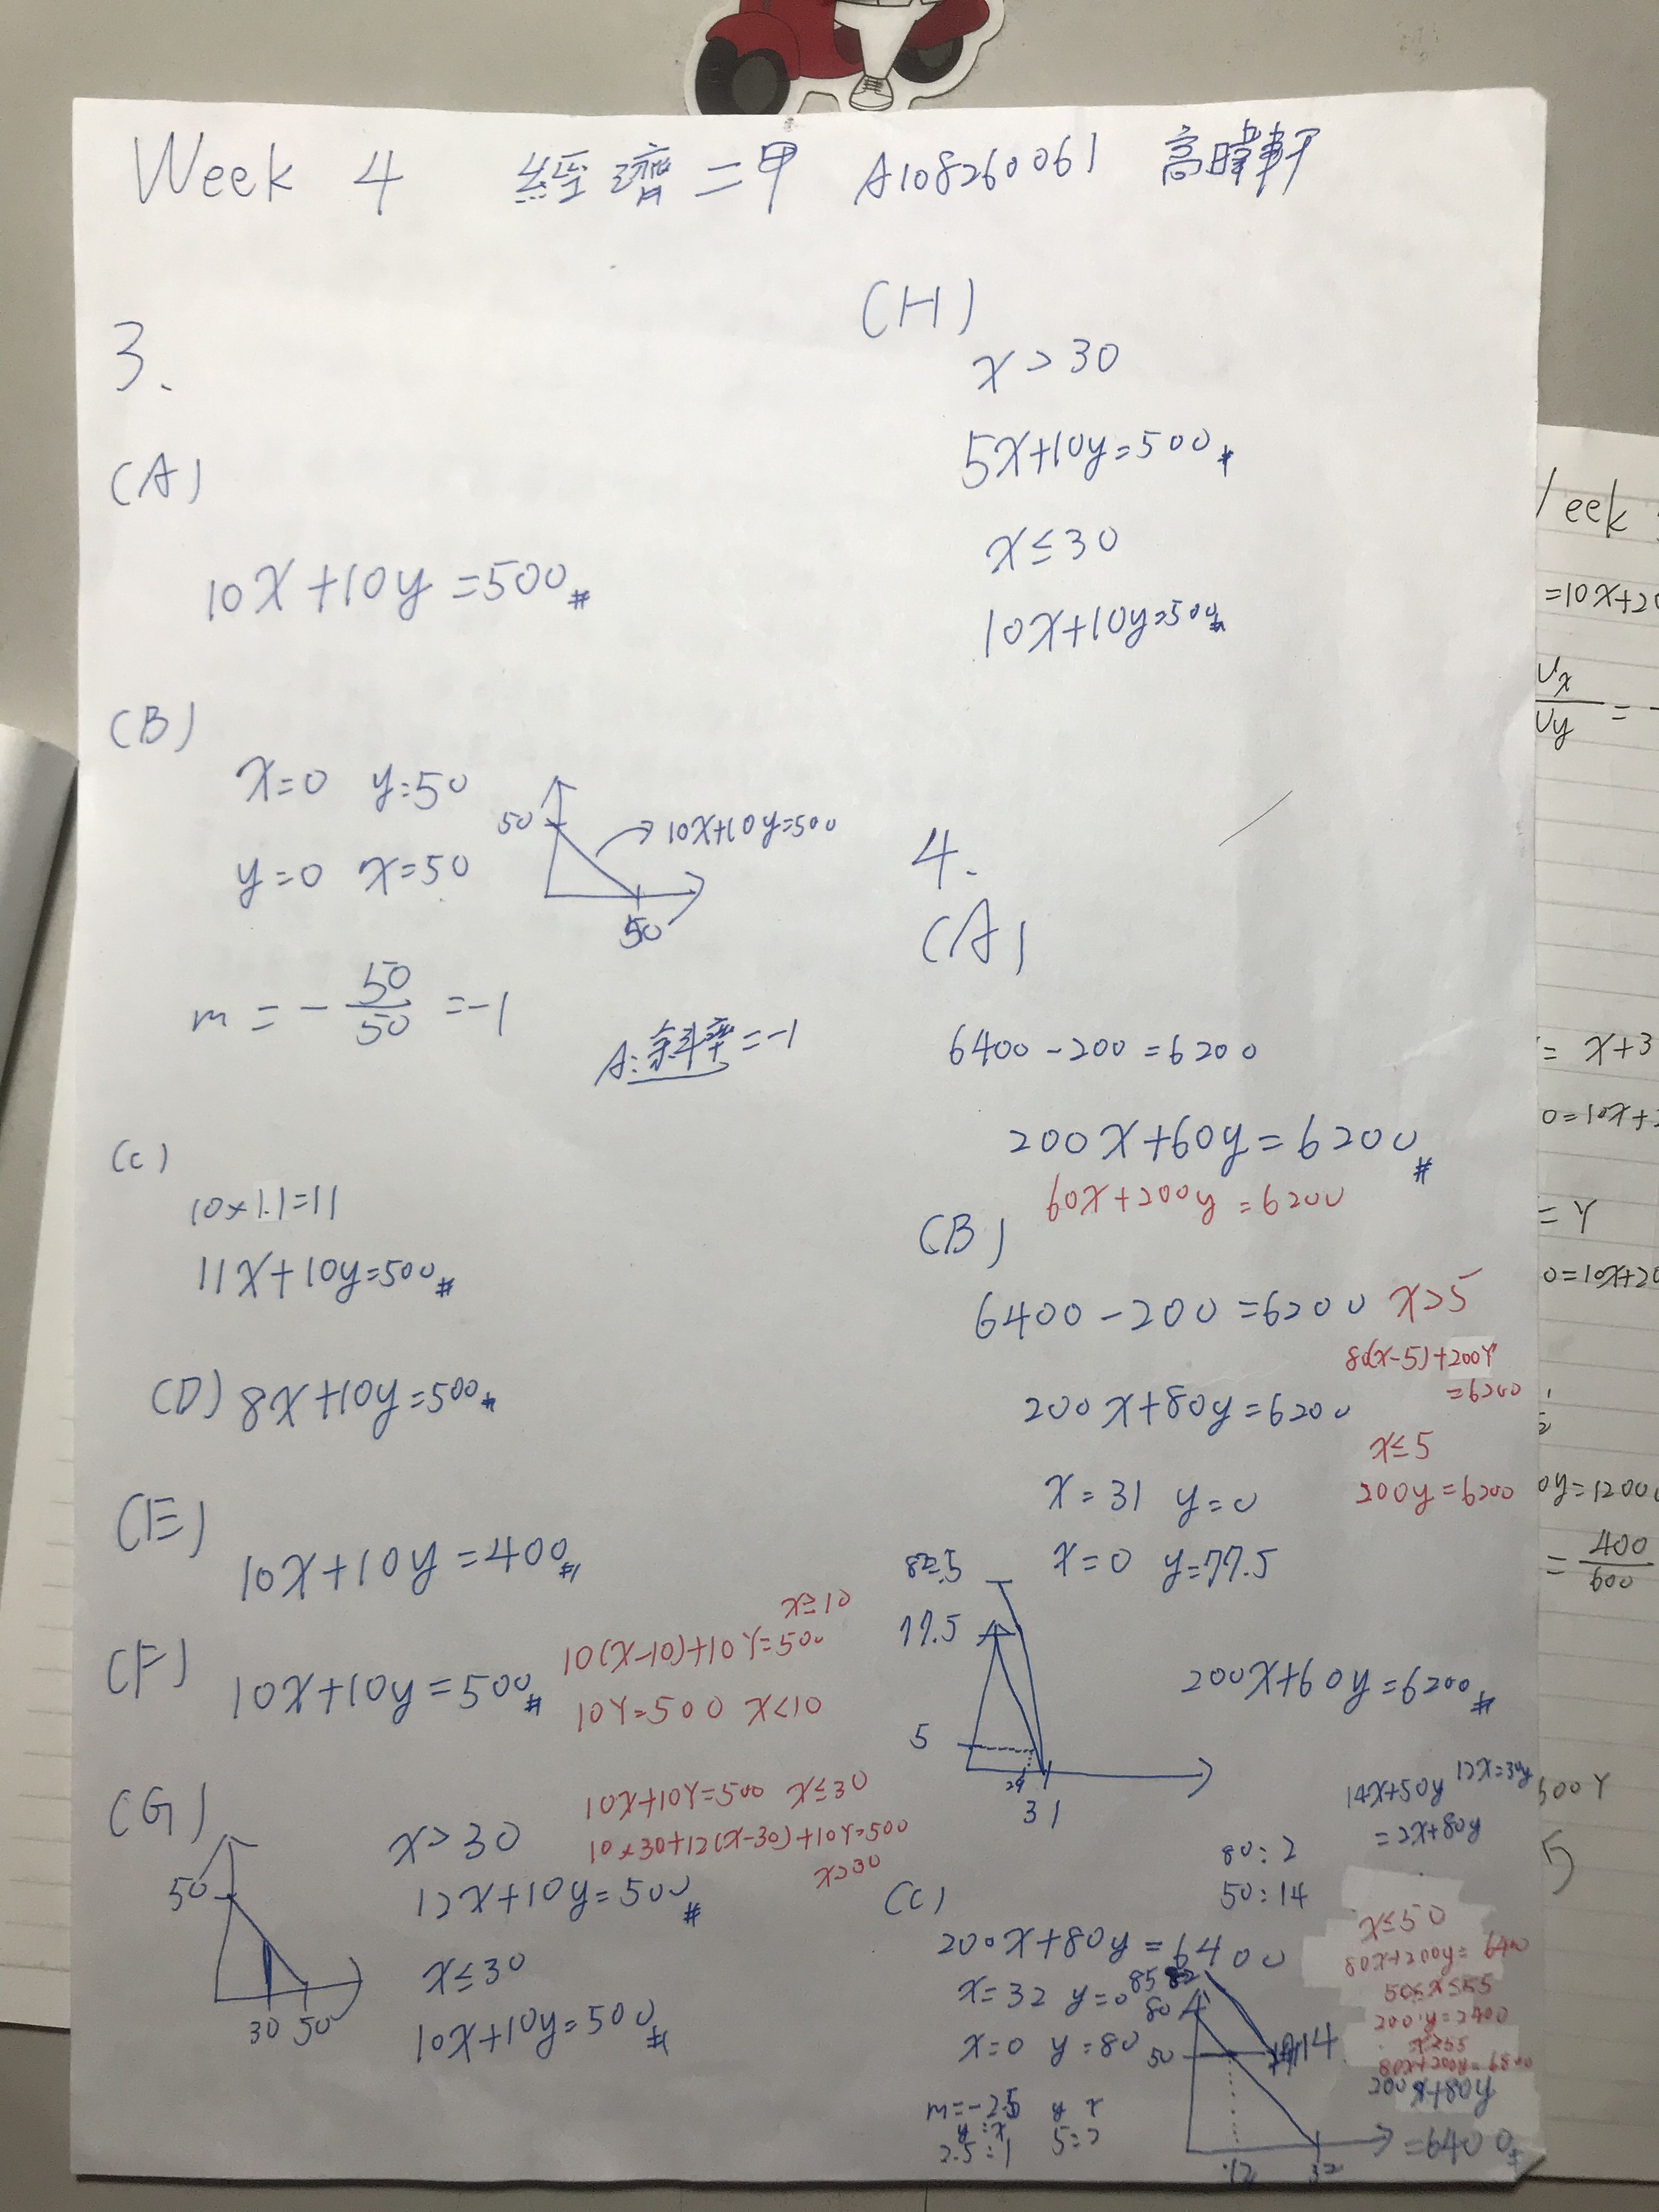 Week 4 經濟二甲 A108260061 高暐軒
3.
(A)
10x+10y=500#
(B)
x=0 y=50
y=0 x=50
50
10x+10y=500
50
m=-50/50=-1
A:斜率=-1
(C)
10×1.1=11
11x+10y=500#
(D) 8x+10y=500#
(E)
10x+10y=400#
(F) 10x+10y=500#
x≥10
10(x-10)+10Y=500
10Y=500 x<10
(G)
50
30 50
x>30
12x+10y=500#
x≤30
10x+10y=500#
10x+10Y=500 x≤30
10×30+12(x-30)+10Y=500
x>30
(H)
x>30
5x+10y=500#
x≤30
10x+10y=500#
4.
(A)
6400-200=6200
200x+60y=6200#
60x+200y=6200
(B)
6400-200=6200
x>5
80(x-5)+200Y
=6200
200x+80y=6200
x≤5
200y=6200
x=31 y=0
x=0 y=77.5
82.5
77.5
5
29
31
200x+60y=6200#
14x+50y 12x=30y
=2x+80y
80:2
50:14
(C)
200x+80y=6400
x=32 y=0
x=0 y=80
80
50
14
12 32
m=-2.5
y:x
2.5:1
y x
5:2
x≤50
80x+200y=6400
50≤x≤55
200y=2400
x≥55
80x+200y=6800
200x+80y
=6400#
Week
=10x+20
Ux/Uy=-
=x+3
0=10x+
=Y
0=10x+20
0y=1200
=400/600
500Y